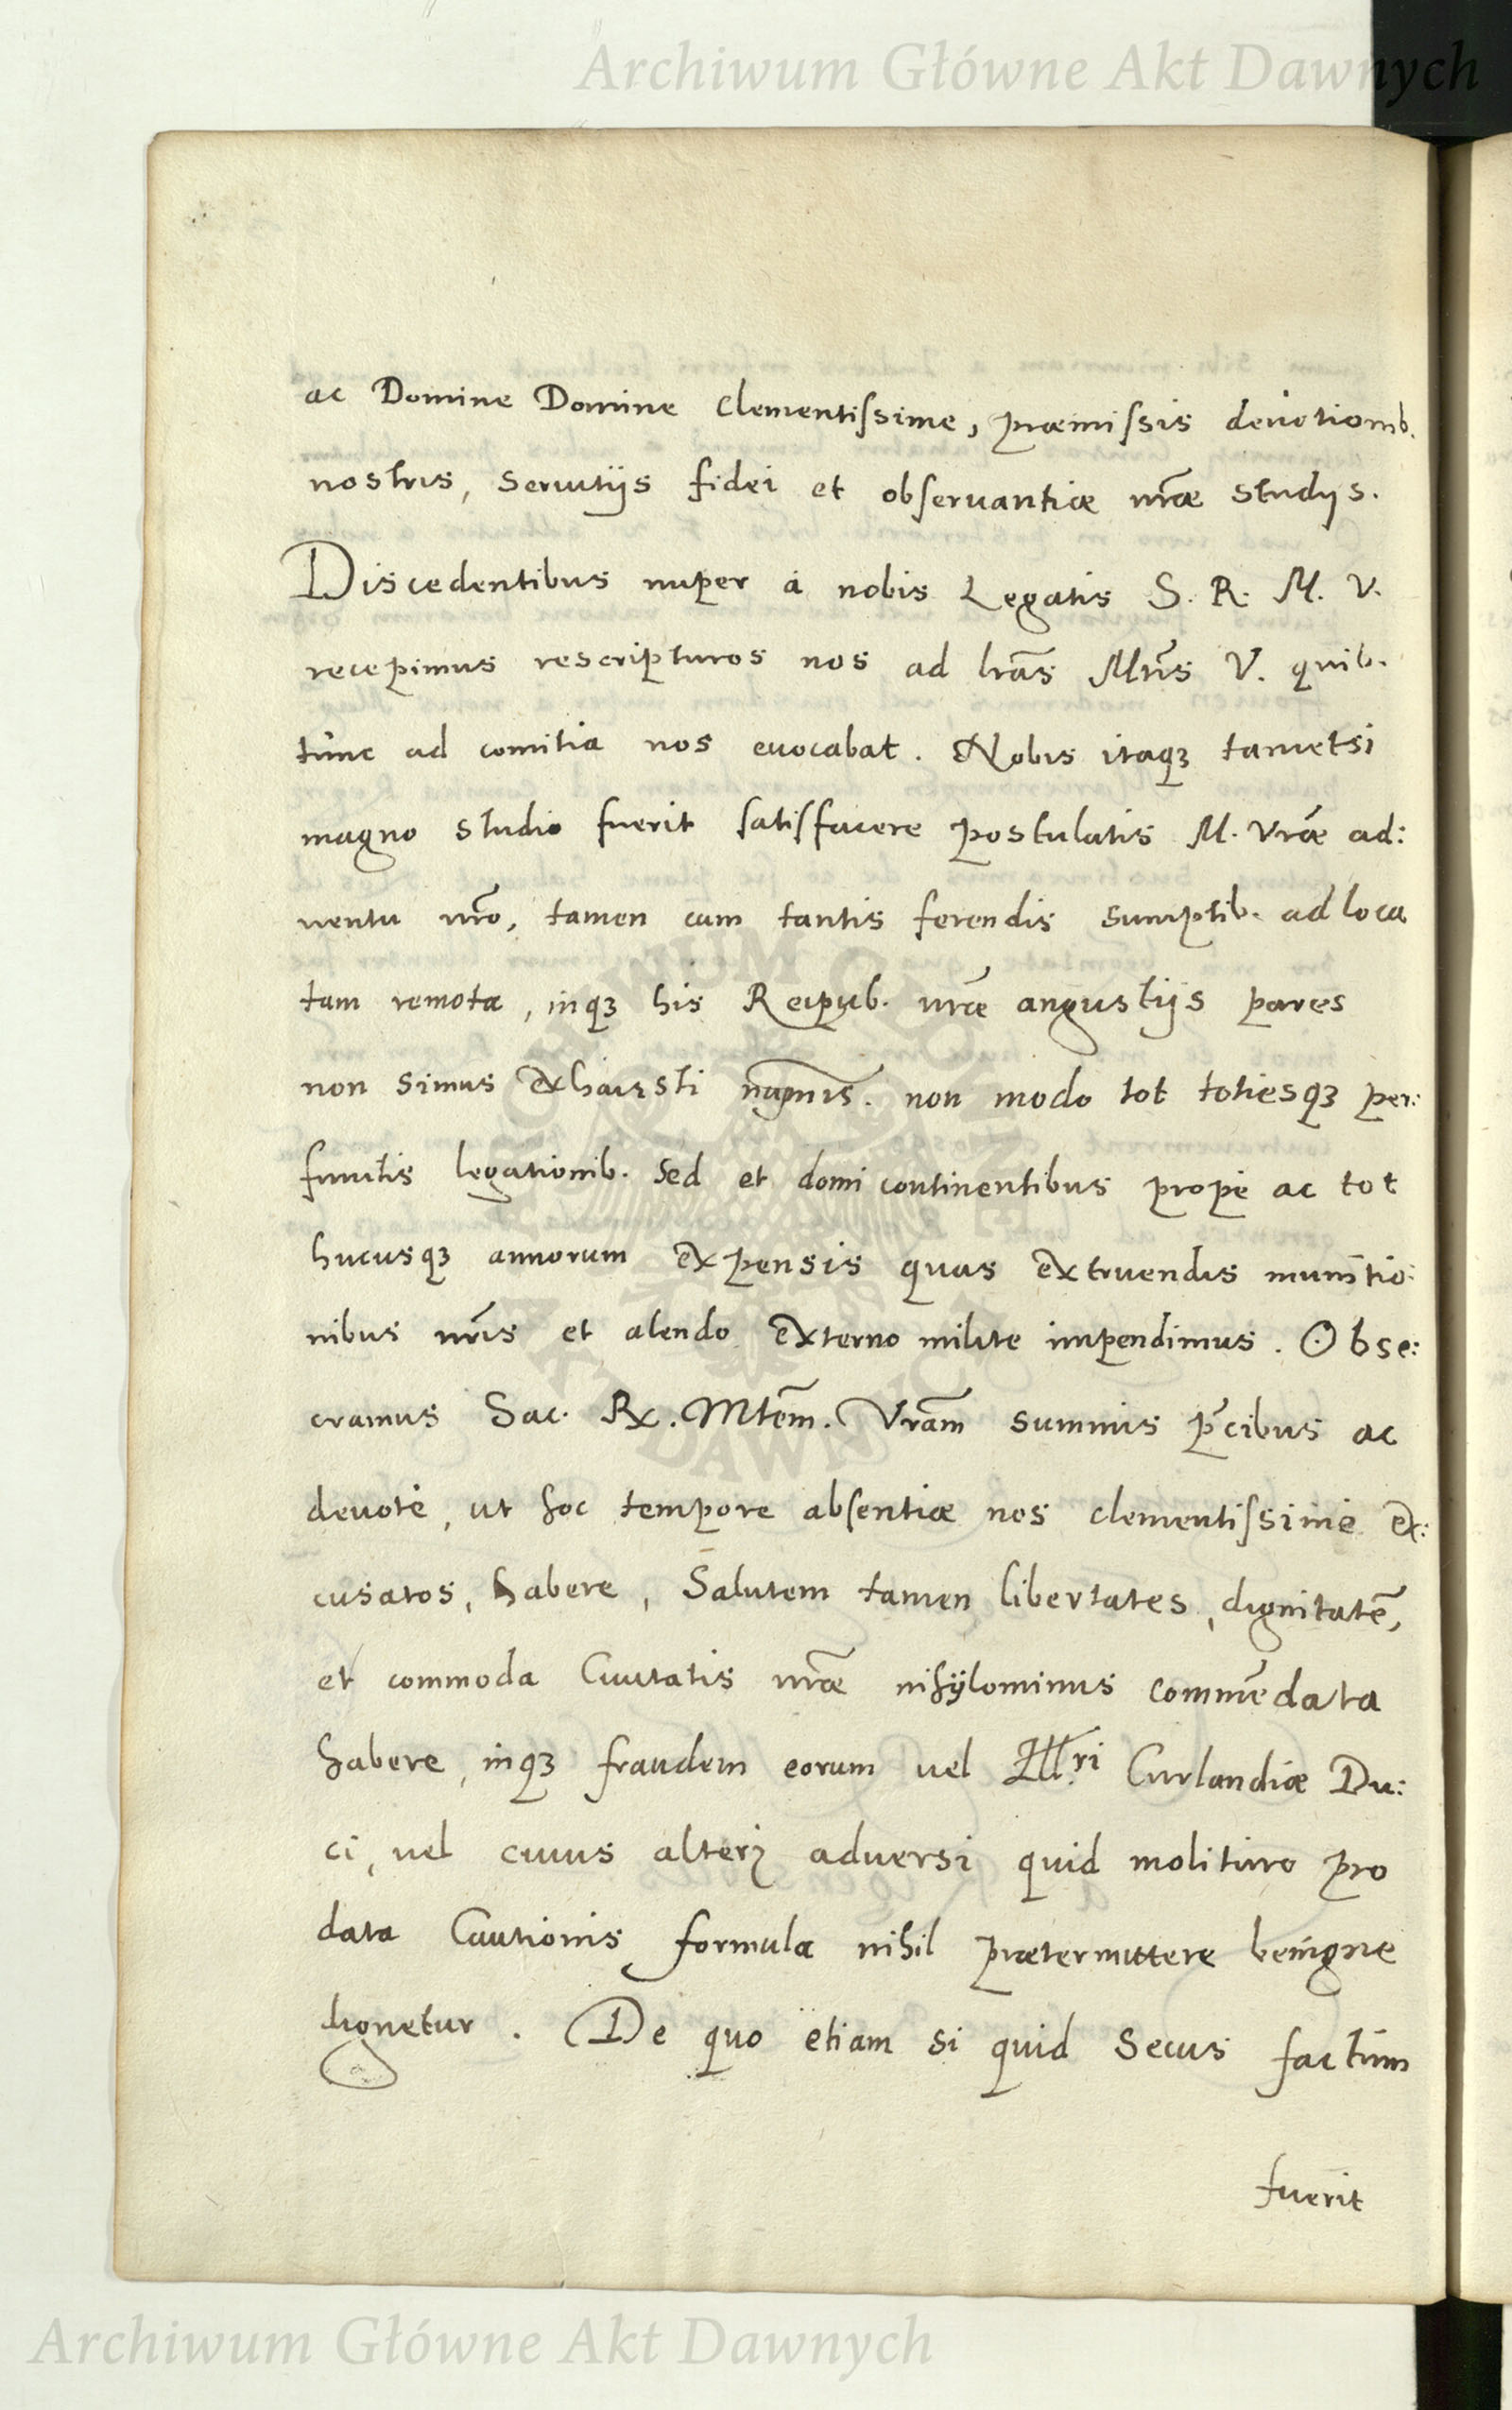 Archiwum Główne Akt Dawnych
ac Domine Domine Clementiſsime, præmiſsis deuotionib.
nostris, seruitijs fidei et obſeruantiæ nr̃æ studijs.
Discedentibus nuper à nobis Legatis S. R. M. V.
recepimus rescripturos nos ad lrãs Mtis̃ V. quib.
tunc ad comitia nos euocabat. Nobis itaqꝫ tametsi
magno studio fuerit ſatiſfacere postulatis M. Vrãe ad:
uentu nrõ, tamen cum tantis ferendis sumptib. ad loca
tam remota, inqꝫ his Reipub. nrãe angustijs pares
non simus exhausti non modo tot totiesqꝫ per:
functis legationib. sed et domi continentibus propè ac tot
hucusqꝫ annorum expensis quas extruendis munitio:
nibus nrĩs et alendo externo milite impendimus. Obse:
cramus Sac. Rx. Mtẽm. Vrãm summis p̃cibus ac
deuotè, ut hoc tempore abſentiæ nos clementiſsimè ex:
cusatos, habere, Salutem tamen libertates, dignitatẽ,
et commoda Ciuitatis nrãe nihilominus commẽdata
habere, inqꝫ fraudem eorum uel Illri Curlandiæ Du:
ci, uel cuius alteri aduersi quid molituro pro
data Cautionis formula nihil prætermittere benigne
dignetur. De quo etiam si quid secus factum
fuerit
Archiwum Główne Akt Dawnych